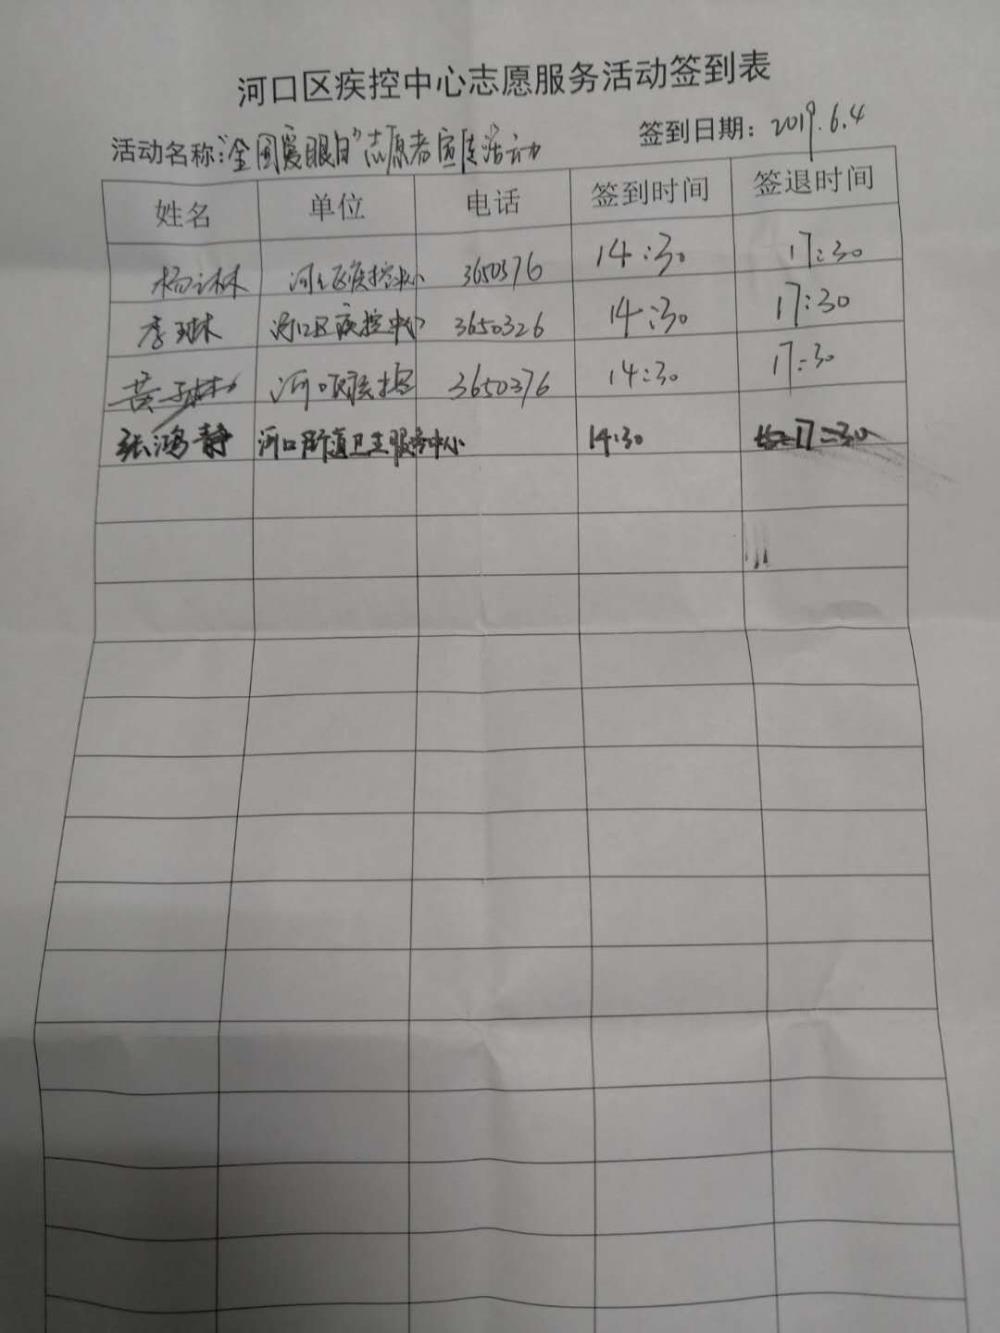 河口区疾控中心志愿服务活动签到表
活动名称:"全国爱眼日"志愿者宣传活动 签到日期: 2019.6.4
姓名 单位 电话 签到时间 签退时间
河口区疾控中心 3650376 14:30 17:30
李琳 河口区疾控中心 3650326 14:30 17:30
黄 河口区疾控 3650376 14:30 17:30
张鸿静 河口街道卫生服务中心 14:30 17:30